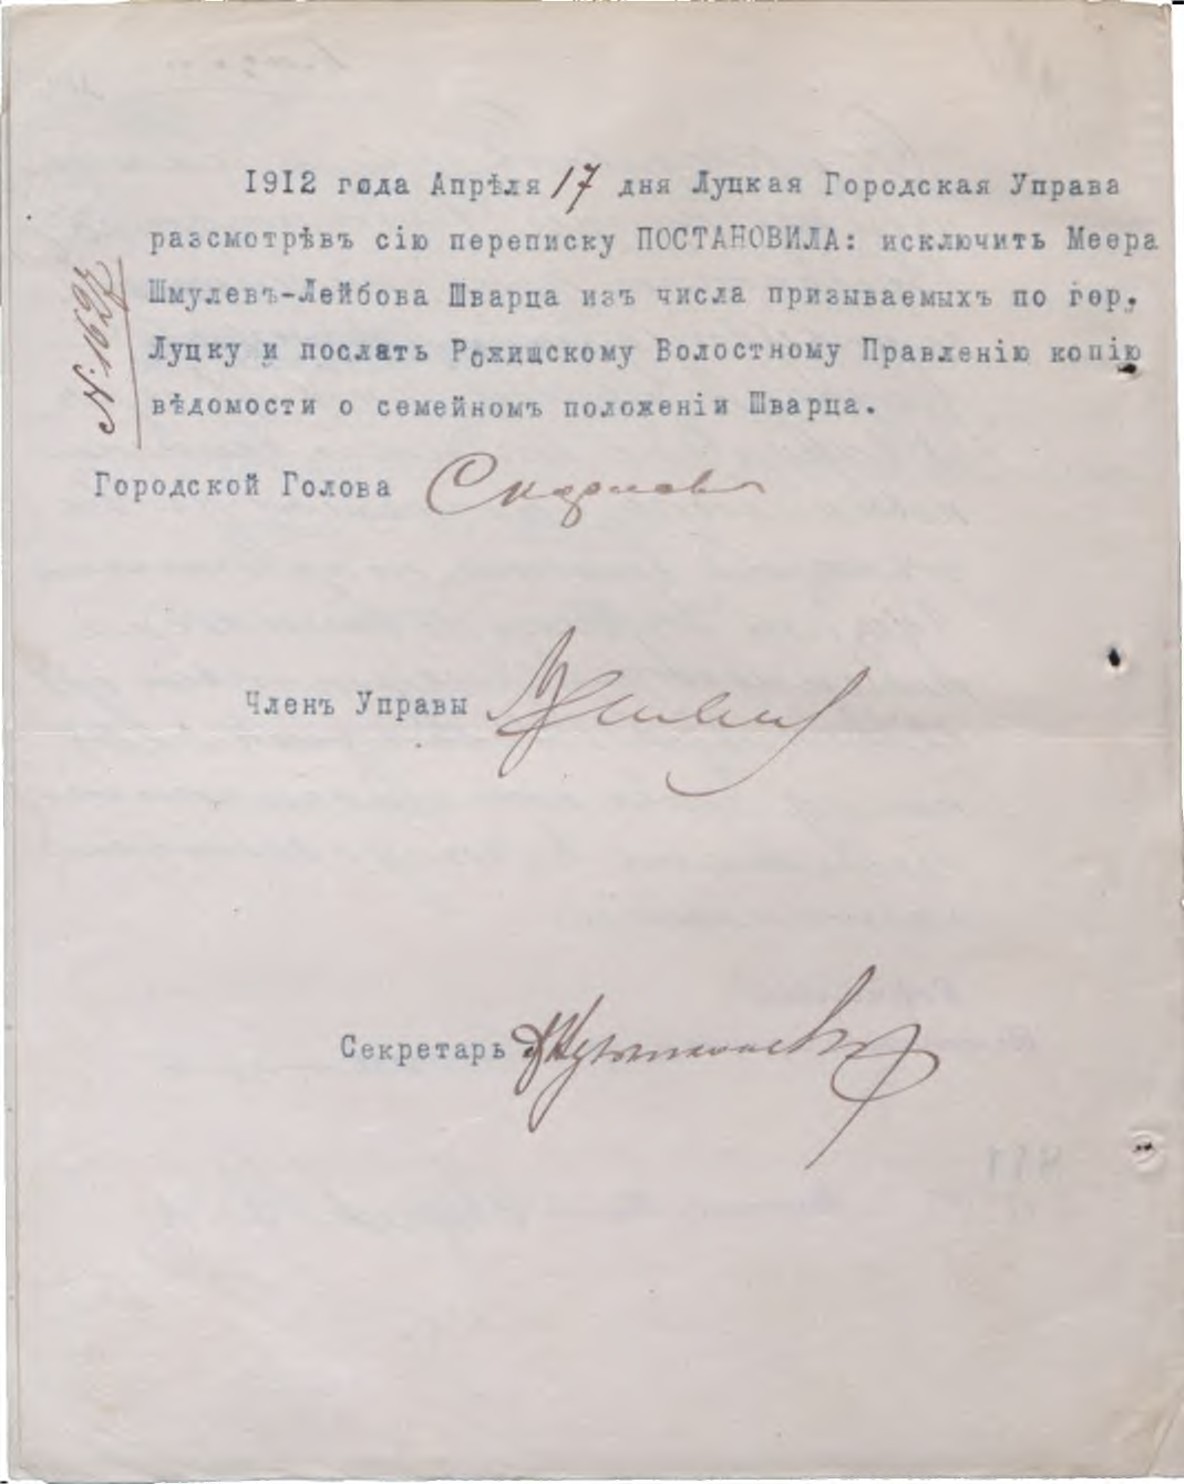 1912 года Апрѣля 17 дня Луцкая Городская Управа
разсмотрѣвъ сію переписку ПОСТАНОВИЛА: исключить Меера
Шмулевъ-Лейбова Шварца изъ числа призываемыхъ по гор.
Луцку и послать Рожищскому Волостному Правленію копію
вѣдомости о семейномъ положеніи Шварца.
№ 1697
Городской Голова
Членъ Управы
Секретарь